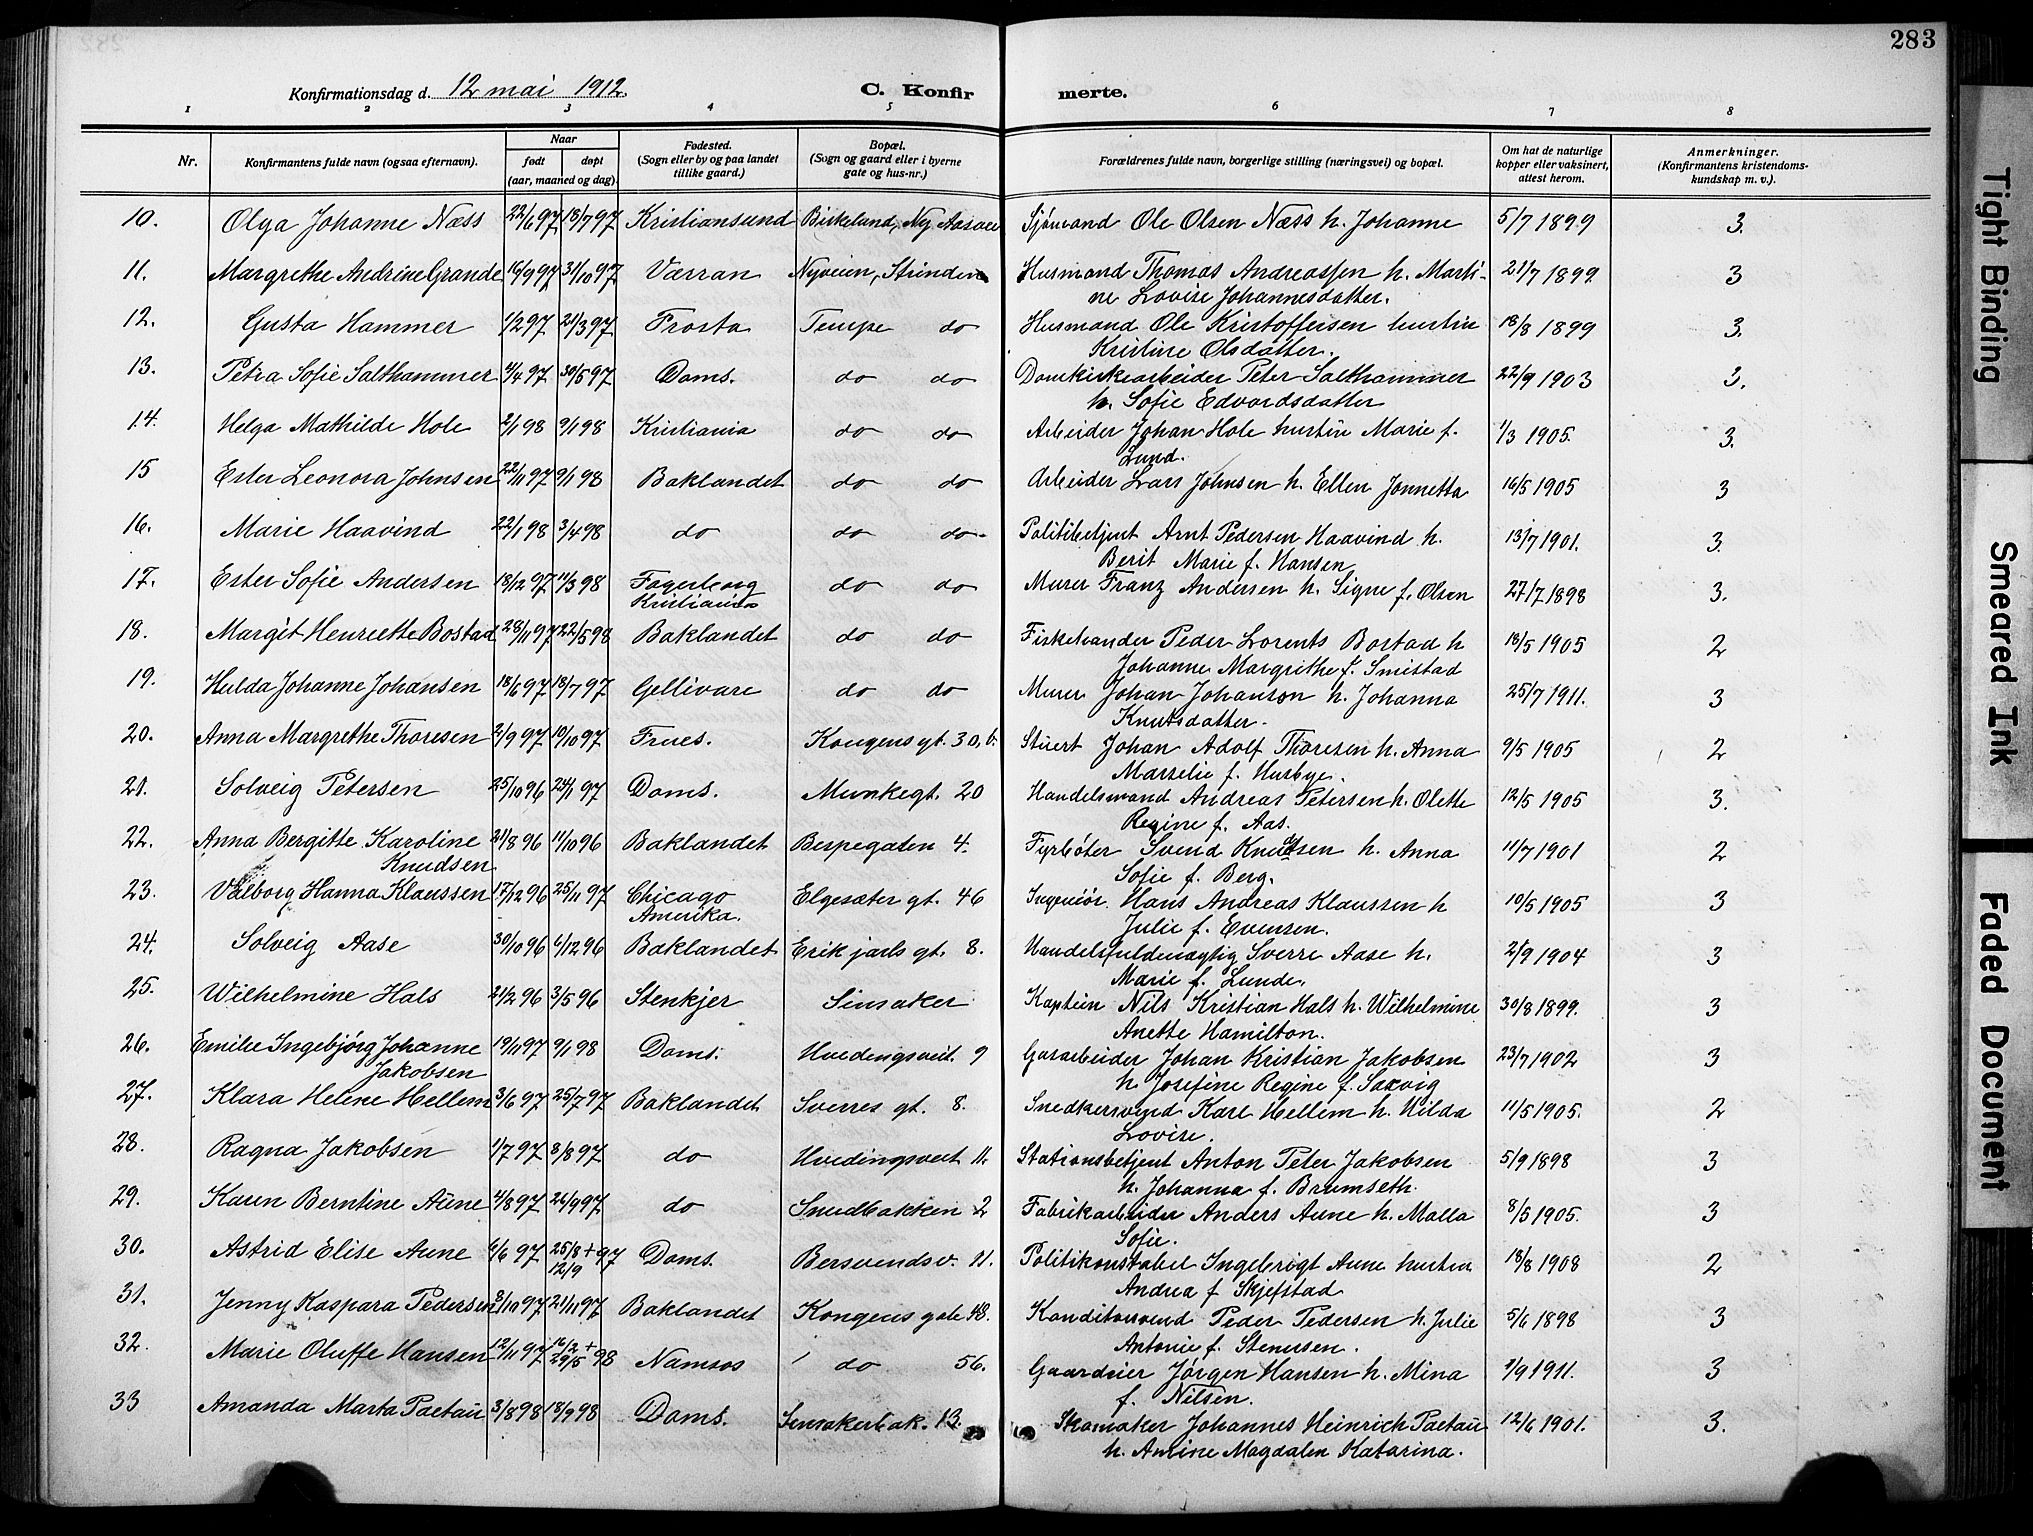 283
Konfirmationsdag d. 12 mai 1912. C. Konfir merte.
1 2 3 4 5 6 7 8
Nr. Konfirmantens fulde navn (ogsaa efternavn). Naar født døpt (aar, maaned og dag). Fødested. (Sogn eller by og paa landet tillike gaard.) Bopæl. (Sogn og gaard eller i byerne gate og hus-nr.) Forældrenes fulde navn, borgerlige stilling (næringsvei) og bopæl. Om hat de naturlige kopper eller vaksinert, attest herom. Anmerkninger. (Konfirmantens kristendomskundskap m. v.).
10. Olga Johanne Næss 22/6 97 18/7 97 Kristiansund Birkelund, Ny Aasvei Sjømand Ole Olsen Næss h. Johanne 5/7 1899 3.
11. Margrethe Andrine Grande 16/9 97 31/10 97 Værran Nyveien, Strinden Husmand Thomas Andreassen h. Marti- 21/7 1899. 3
ne Lovise Johannesdatter.
12. Gusta Hammer 1/2 97 21/3 97 Frosta Tempe do Husmand Ole Kristoffersen hustru 18/8 1899 3.
Kristine Olsdatter.
13. Petra Sofie Salthammer 2/4 97 30/5 97 Doms. do do Domkirkearbeider Peter Salthammer 22/9 1903 3.
h. Sofie Edvardsdatter
14. Helga Mathilde Hole 2/1 98 9/1 98 Kristiania do do Arbeider Johan Hole hustru Marie f. 1/3 1905. 3.
Lund.
15 Ester Leonora Johnsen 22/11 97 9/1 98 Baklandet do do Arbeider Lars Johnsen h. Ellen Jonnetta 16/5 1905 3
16. Marie Haavind 22/1 98 3/4 98 do do do Politibetjent Arnt Pedersen Haavind h. 13/7 1901. 3.
Berit Marie f. Hansen
17. Ester Sofie Andersen 18/12 97 11/3 98 Fagerborg do do Murer Franz Andersen h. Signe f. Olsen 27/7 1898 3.
Kristiania
18. Margit Henriette Bostad 28/11 97 22/5 98 Baklandet do do Fiskehandler Peder Lorents Bostad h 18/5 1905 2
Johanne Margrethe f. Smistad
19. Hulda Johanne Johansen 18/6 97 18/7 97 Gellivare do do Murer Johan Johanson h. Johanna 25/7 1911. 3
Knutsdatter.
20. Anna Margrethe Thoresen 2/9 97 10/10 97 Frues. Kongens gt. 30, b. Stuert Johan Adolf Thoresen h. Anna 9/5 1905 2
Marselie f. Husbye.
21. Solveig Petersen 25/10 96 24/1 97 Doms. Munkegt. 20 Handelsmand Andreas Petersen h. Olette 12/5 1905 3.
Regine f. Aas.
22. Anna Bergitte Karoline 21/8 96 11/10 96 Baklandet Bispegaten 4. Fyrbøter Svend Knudsen h. Anna 11/7 1901 2
Knudsen Sofie f. Berg.
23. Valborg Hanna Klaussen 17/12 96 25/11 97 Chicago Elgesæter gt. 46 Ingeniør. Hans Andreas Klaussen h 10/5 1905 3
Amerika. Julie f. Evensen.
24. Solveig Aase 30/10 96 6/12 96 Baklandet Erik jarls gt. 8. Handelsfuldmægtig Sverre Aase h. 2/9 1904 3
Marie f. Lunde.
25. Wilhelmine Hals 21/2 96 3/5 96 Stenkjer Sinsaker Kaptein Nils Kristian Hals h. Wilhelmine 30/8 1899. 3
Anette Hamilton.
26. Emilie Ingebjørg Johanne 19/11 97 9/1 98 Doms. Hvedingsveit. 9 Gasarbeider Johan Kristian Jakobsen 23/7 1902 3
Jakobsen h Josefine Regine f. Saxvig
27. Klara Helene Hellem 3/6 97 25/7 97 Baklandet Sverres gt. 8. Snedkersvend Karl Hellem h. Hilda 11/5 1905. 2
Lovise.
28. Ragna Jakobsen 1/7 97 8/8 97 do Hvedingsveit 11. Stationsbetjent Anton Peter Jakobsen 5/9 1898 3
h. Johanna f. Brumseth.
29. Karen Berntine Aune 4/8 97 26/9 97 do Smedbakken 2 Fabrikarbeider Anders Aune h. Malla 8/5 1905. 3
Sofie.
30. Astrid Elise Aune 6/6 97 25/8 + 12/9 97 Doms. Bersvendsv. 11. Politikonstabel Ingebrigt Aune hustru 18/8 1908 2
Andrea f Skjefstad
31. Jenny Kaspara Pedersen 3/10 97 21/11 97 Baklandet Kongens gate 48. Konditorsvend Peder Pedersen h. Julie 5/6 1898 3
Antonie f. Stenersen.
32. Marie Oluffe Hansen 12/11 97 16/2 + 29/5 98 Namsos do 56. Gaardeier Jørgen Hansen h. Mina 1/9 1911. 3
f. Nilsen.
33 Amanda Marta Paetau 3/8 98 18/9 98 Doms. Sinsakerbak. 13. Skomaker Johannes Heinrich Paetau 12/6 1901. 3.
h. Amine Magdalen Katarina.
Tight Binding
Smeared Ink
Faded Document